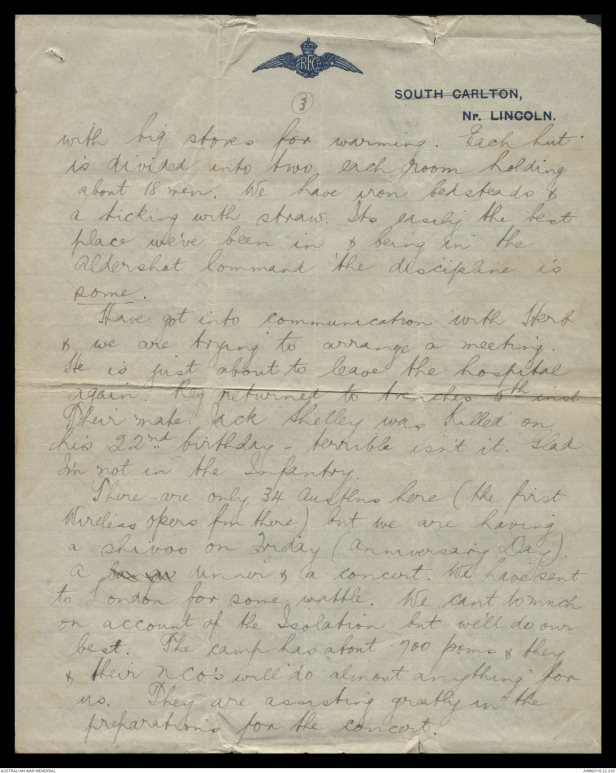 RFC
3
SOUTH CARLTON,
Nr. LINCOLN.
with big stoves for warming. Each hut
is divided into two each room holding
about 18 men. We have iron bedsteads &
a ticking with straw. Its easily the best
place we've been in & being in the
Aldershot Command the discipline is
some.
Have got into communication with Herb
& we are trying to arrange a meeting.
He is just about to leave the hospital
again. Reg returned to trenches 5th inst
Their mate Jack Shelley was killed on
his 22nd birthday - terrible isn't it. Glad
I'm not in the Infantry.
There are only 34 Austlns here (the first
Wireless opers fm there) but we are having
a shivoo on Friday (Anniversary Day).
A dinner & a concert. We have sent
to London for some wattle. We cant do much
on account of the Isolation but we'll do our
best. The camp has about 700 poms & they
& their NCO's will do almost anything for
us. They are assisting greatly in the
preparations for the concert.
AUSTRALIAN WAR MEMORIAL